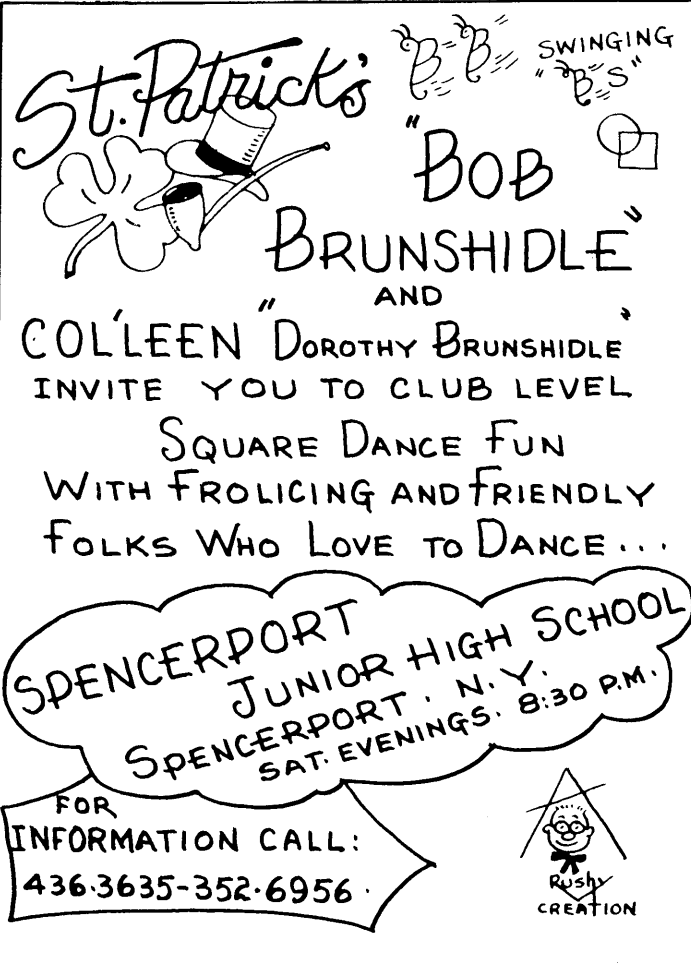 St. Patrick's
B B
SWINGING
"B'S"
"BOB
BRUNSHIDLE"
AND
COL'LEEN "DOROTHY BRUNSHIDLE"
INVITE YOU TO CLUB LEVEL
SQUARE DANCE FUN
WITH FROLICING AND FRIENDLY
FOLKS WHO LOVE TO DANCE...
SPENCERPORT
JUNIOR HIGH SCHOOL
SPENCERPORT. N.Y.
SAT. EVENINGS. 8:30 P.M.
FOR
INFORMATION CALL:
436.3635-352.6956.
A
Rushy
CREATION